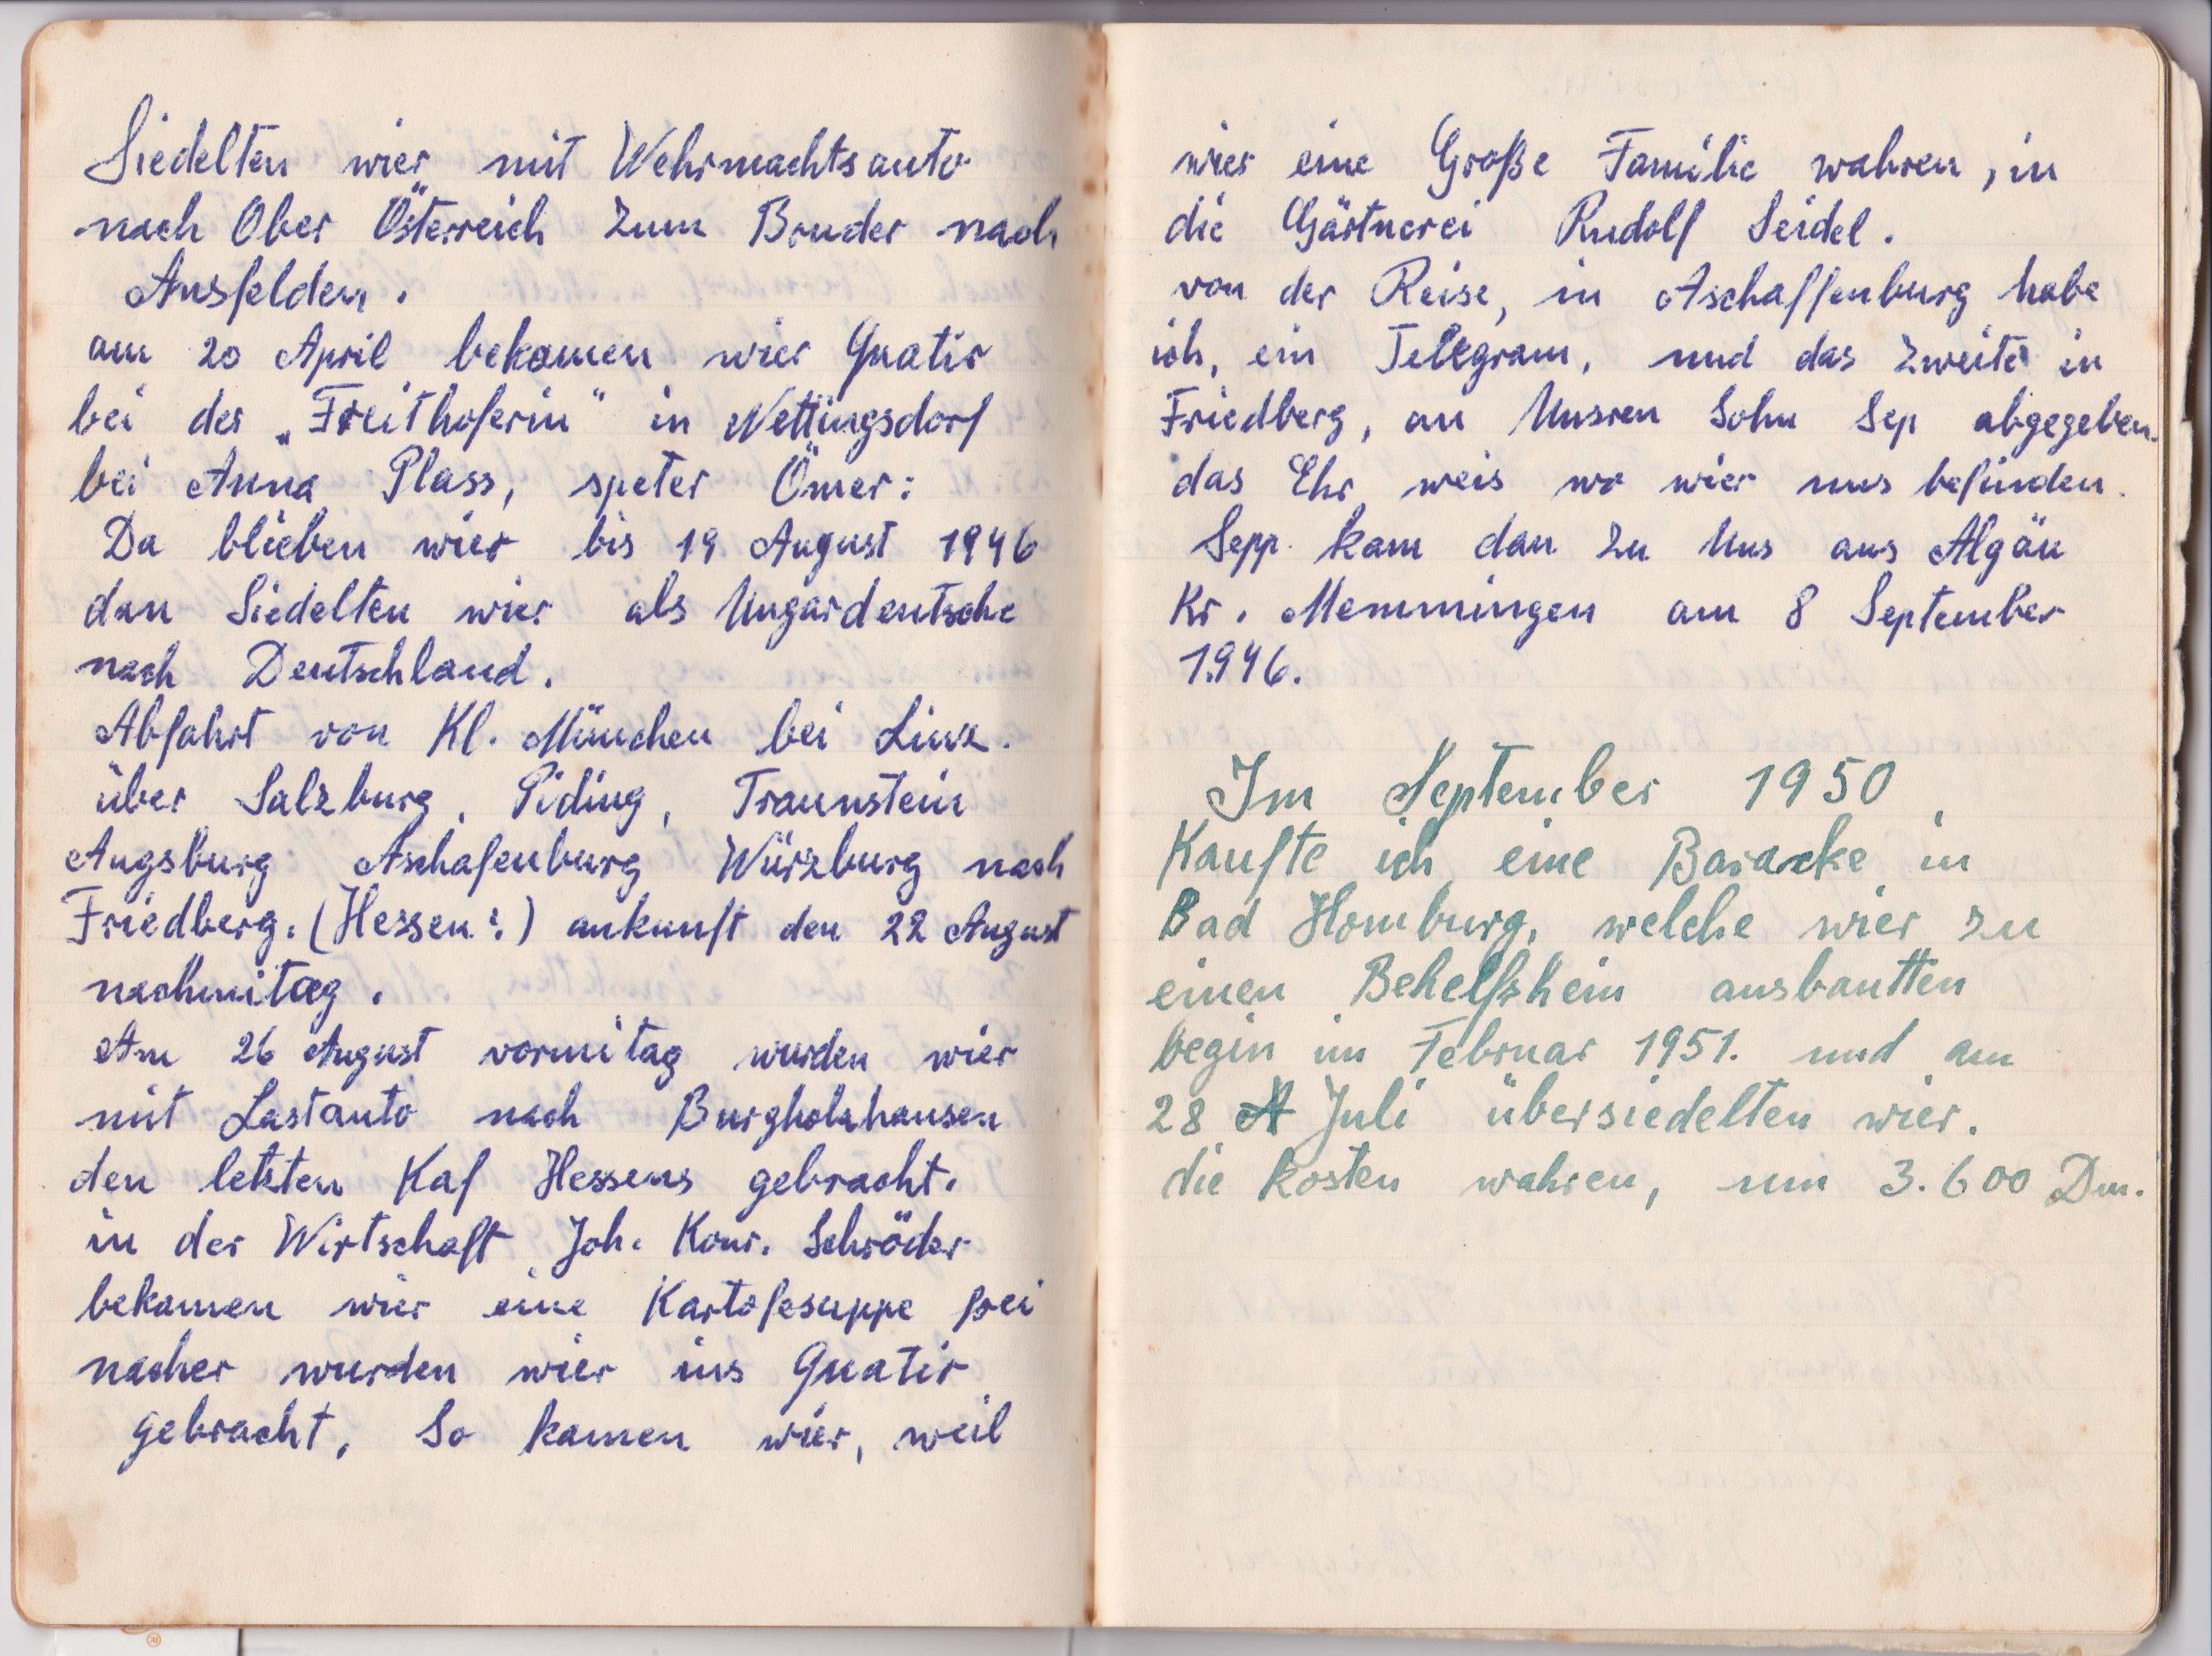 Siedelten wier mit Wehrmachtsauto
nach Ober Österreich zum Bruder nach
Ansfelden.
am 20 April bekamen wier Quatir
bei der „Freithoferin" in Nettingsdorf
bei Anna Plass, speter Ömer:
Da blieben wier bis 19 August 1946
dan Siedelten wier als Ungardeutsche
nach Deutschland.
Abfahrt von Kl. München bei Linz.
über Salzburg, Piding, Traunstein
Augsburg Aschafenburg Würzburg nach
Friedberg. (Hessen:) ankunft den 22 August
nachmitag.
Am 26 August vormitag wurden wier
mit Lastauto nach Burgholzhausen
den letzten Kaf Hessens gebracht.
in der Wirtschaft Joh. Konr. Schröder
bekamen wier eine Kartofesuppe frei
nacher wurden wier ins Quatir
gebracht, So kamen wier, weil
wier eine Große Familie wahren, in
die Gärtnerei Rudolf Seidel.
von der Reise, in Aschaffenburg habe
ich, ein Telegram, und das zweite in
Friedberg, an Unsren Sohn Sep abgegeben.
das Ehr weis wo wier uns befinden.
Sepp. kam dan zu Uns aus Algäu
Kr. Memmingen am 8 September
1946.
Im September 1950
Kaufte ich eine Baracke in
Bad Homburg, welche wier zu
einen Behelfsheim ausbautten
begin im Februar 1951. und am
28 A Juli übersiedelten wier.
die kosten wahren, um 3.600 Dm.